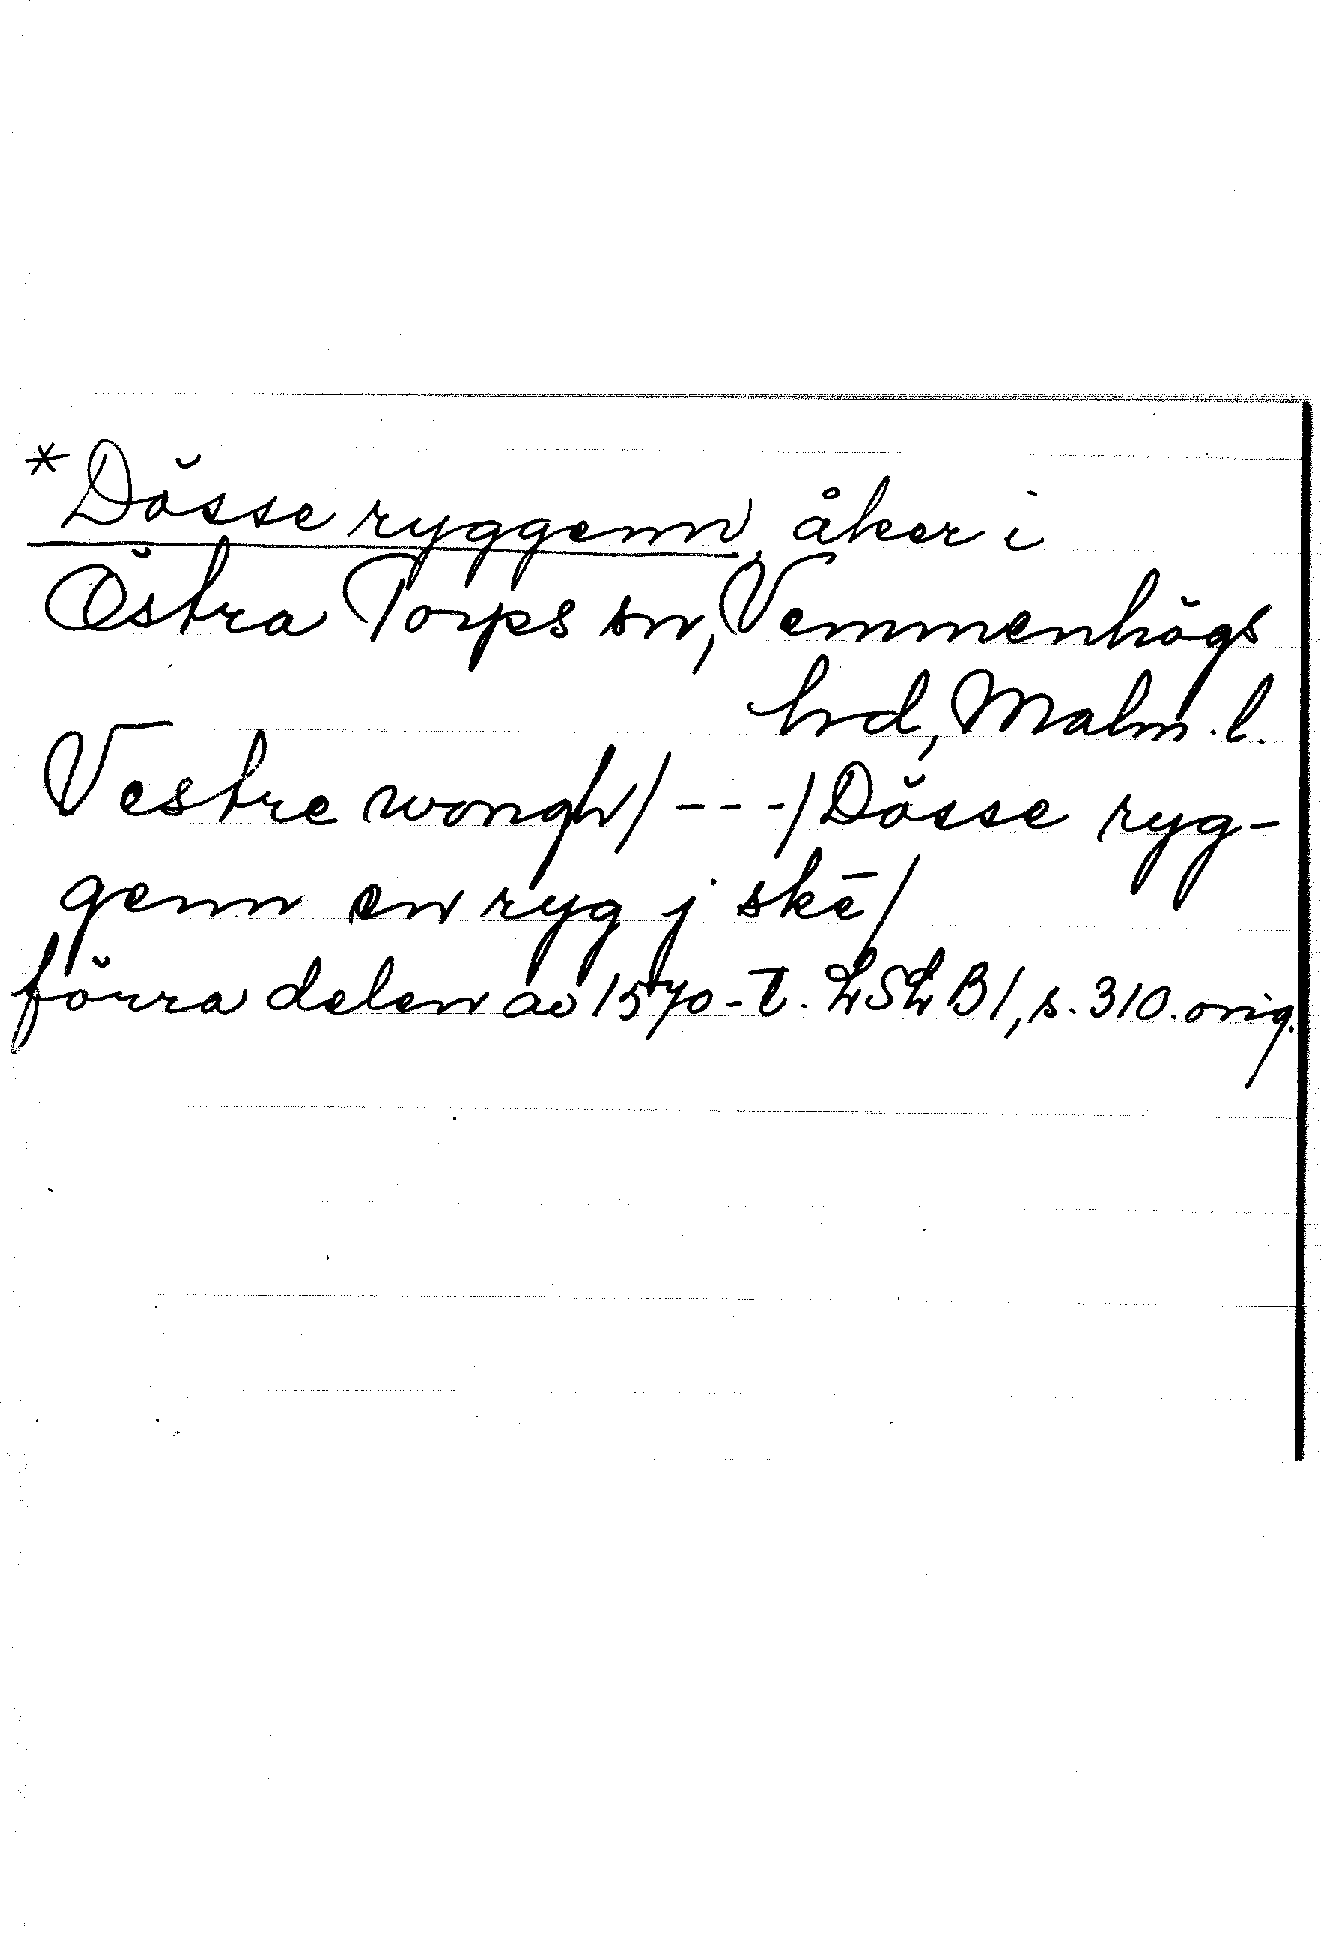 *Dösse ryggenn, åker i
Östra Torps sn, Vemmenhögs
hd, Malm. l.
Vestre wongh/ - - -/ Dösse ryg-
genn en ryg j skē/
förra delen av 1570-t. LSLB1, s. 310. orig.